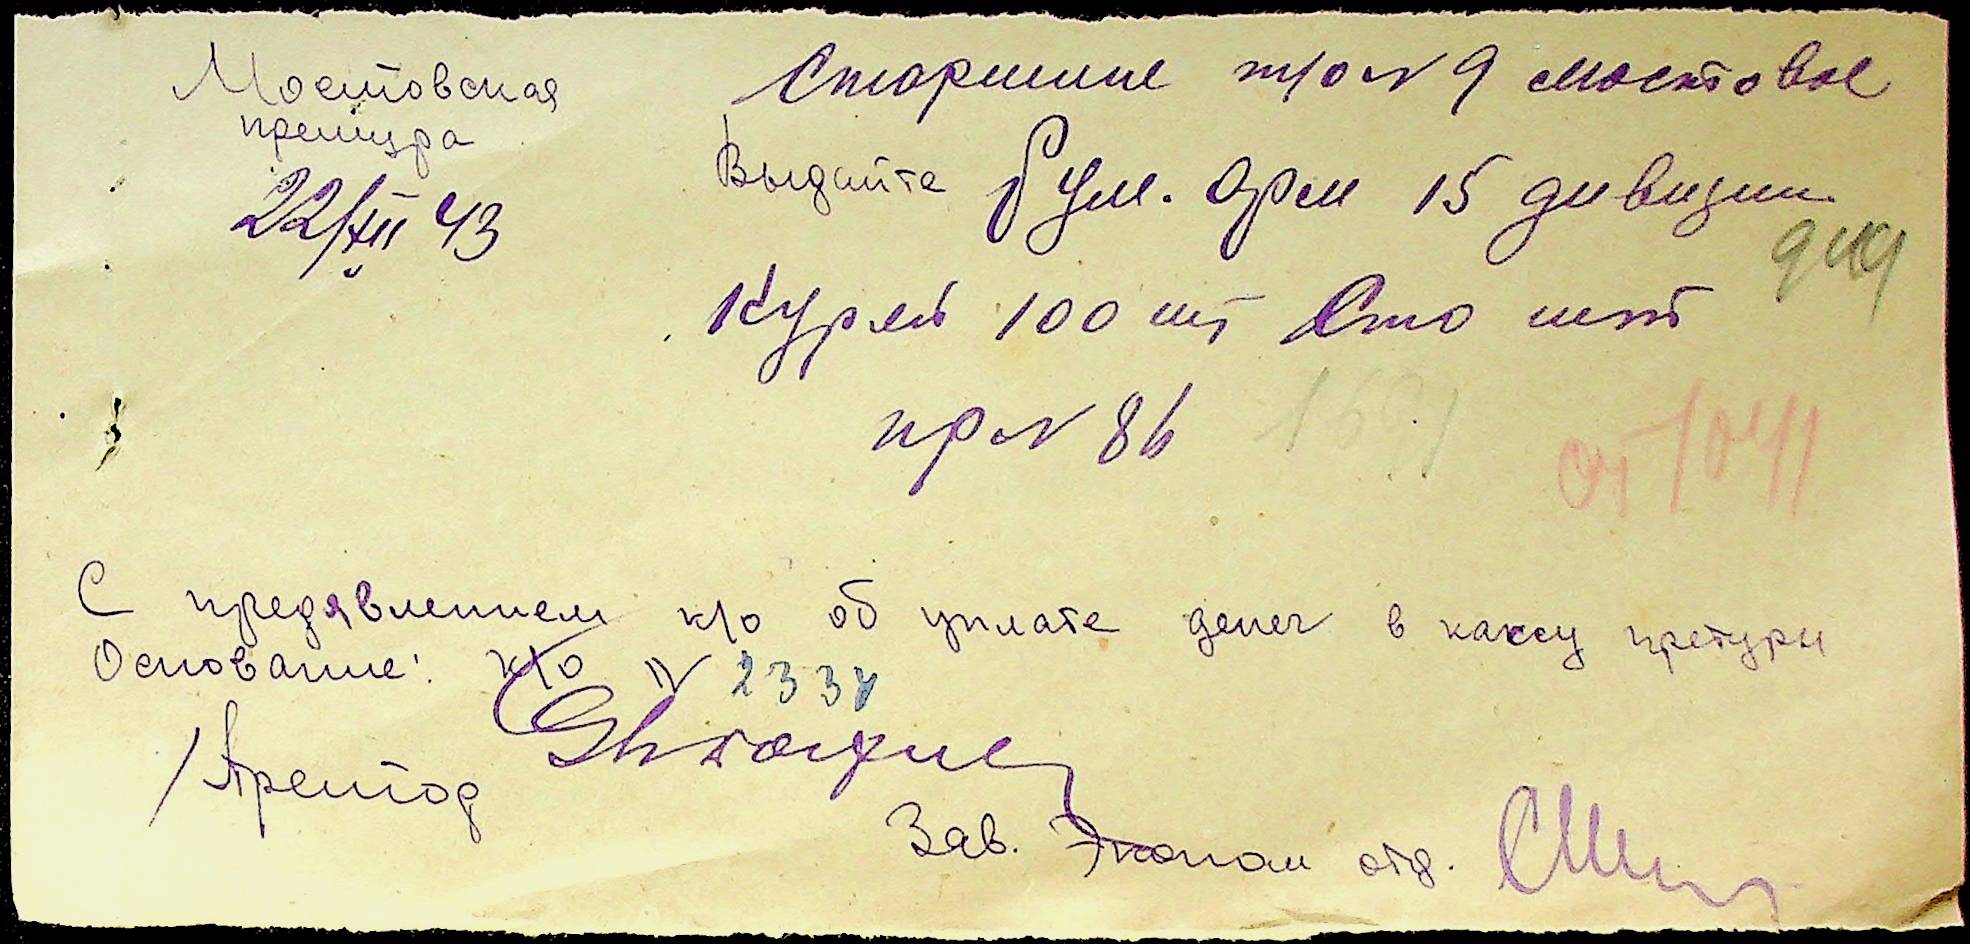 Мостовская
претура
22/XII 43
Старшине т/о № 9 Мостовое
Выдайте Рум. Арм 15 дивизии
Курей 100 шт Сто шт
пр № 86
от 1041
С предявлением к/о об уплате денег в кассу претуры
Основание: к/о № 2334
/Претор
Зав. Эконом отд.